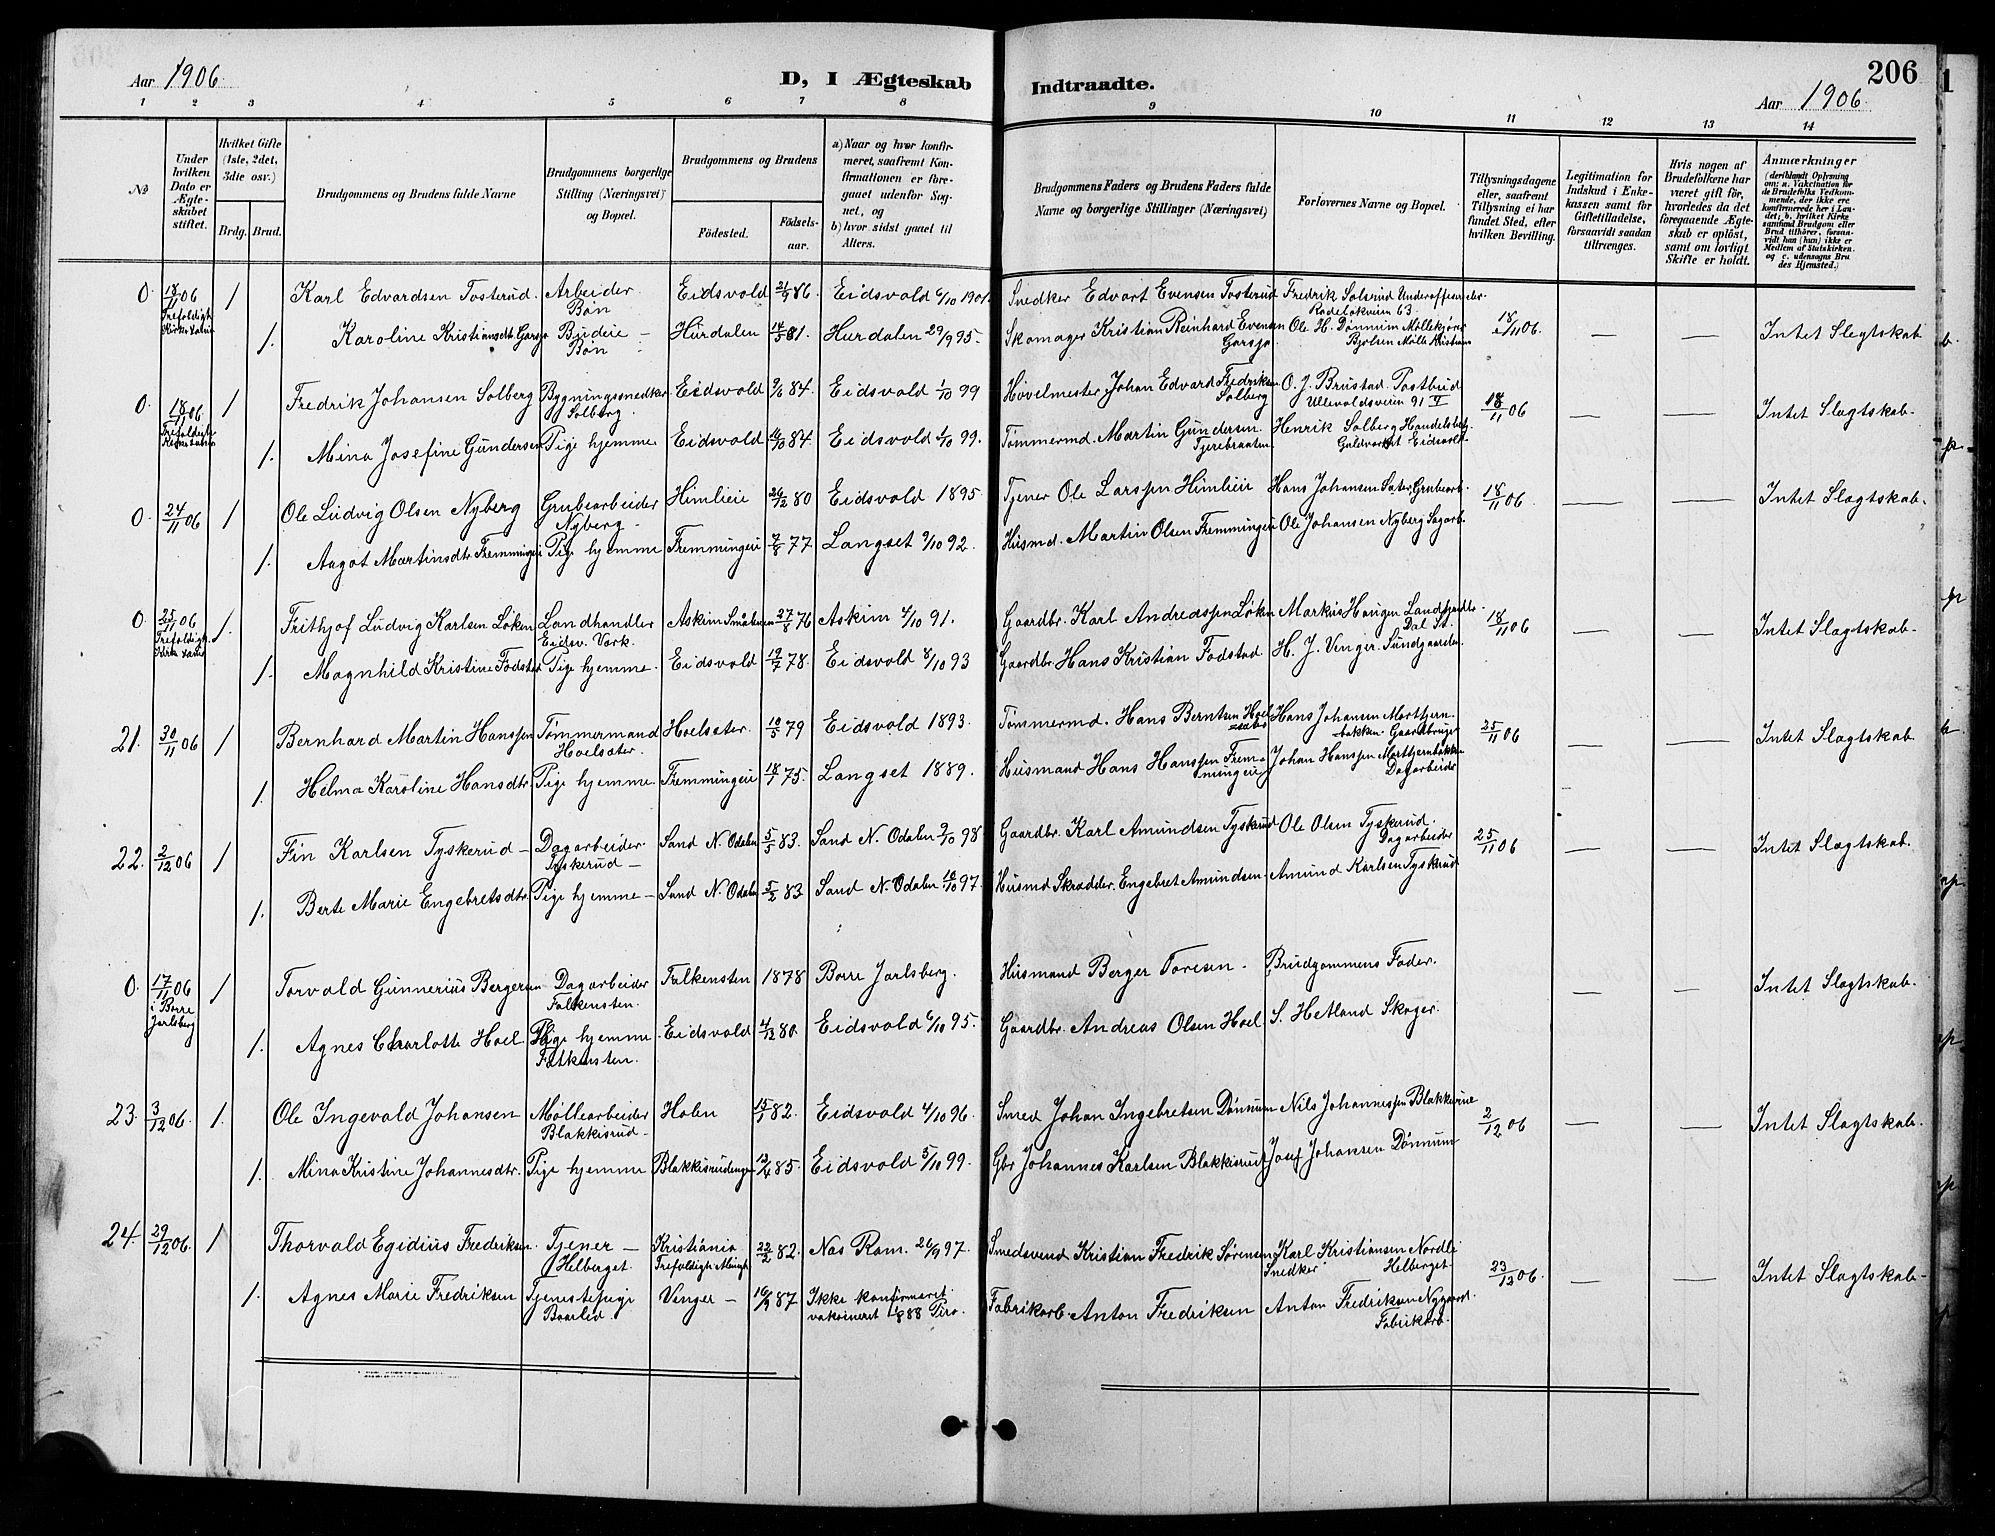 206
Aar 1906
D, I Ægteskab Indtraadte.
Aar 1906.
1 2 3 4 5 6 7 8 9 10 11 12 13 14
No
Under hvilken Dato er Ægteskabet stiftet.
Hvilket Gifte (1ste, 2det, 3die osv.)
Brdg. Brud.
Brudgommens og Brudens fulde Navne
Brudgommens borgerlige Stilling (Næringsvei) og Bopæl.
Brudgommens og Brudens
Fødested.
Fødselsaar.
a) Naar og hvor konfirmeret, saafremt Konfirmationen er foregaaet udenfor Sognet, og
b) hvor sidst gaaet til Alters.
Brudgommens Faders og Brudens Faders fulde Navne og borgerlige Stillinger (Næringsvei)
Forlovernes Navne og Bopæl.
Tillysningsdagene eller, saafremt Tillysning ei har fundet Sted, efter hvilken Bevilling.
Legitimation for Indskud i Enkekassen samt for Giftetilladelse, forsaavidt saadan tiltrænges.
Hvis nogen af Brudefolkene har været gift før, hvorledes da det foregaaende Ægteskab er opløst, samt om lovligt Skifte er holdt.
Anmærkninger (deriblandt Oplysning om: a. Vakcination for de Brudefolks Vedkommende, der ikke ere konfirmerede her i Landet; b. hvilket Kirkesamfund Brudgom eller Brud tilhører, forsaavidt han (hun) ikke er Medlem af Statskirken, og c. udensogns Brudes Hjemsted.)
0. 18/11 06 1 Karl Edvardsen Tosterud. Arbeider Eidsvold 21/9 86. Eidsvold 6/10 1901. Snedker Edvart Evensen Tosterud Fredrik Solsrud Underofficer
Trefoldigh. Bøn 63.
1. Karoline Kristiansdt. Garsjø Budeie – Hurdalen 14/5 81. Hurdalen 29/9 95. Skomager Kristian Reinhard Evensen Ole H. Dønnum Møllekjører 18/11 06. — — Intet Slegtskab
Bøn Garsjø Bjølsen Mølle Kristiania
0. 18/11 06. 1 Fredrik Johansen Solberg Bygningssnedker Eidsvold 9/6 84. Eidsvold 1/10 99 Høvelmester Johan Edvard Fredriksen O. J. Brustad. Postbud
Solberg. Solberg Ullevoldsveien 91 V 18/11 06 — — Intet Slagtskab.
Trefoldigh.
1. Mina Josefine Gundersen Tige hjemme Eidsvold 16/10 84 Eidsvold 1/10 99. Tømmermd. Martin Gundersen Henrik Solberg
Tjerebraaten Guldverket Eidsvold.
0. 24/11 06 1 Ole Ludvig Olsen Nyberg Grubearbeider Himlieie 26/12 80 Eidsvold 1895. Tjener Ole Larssen Himlieie Hans Johansen Sater. Grubearb. 18/11 06 — — Intet Slagtskab.
Nyberg.
1. Aagot Martinsdtr. Fremmingeie Pige hjemme Fremmingeie 7/8 77 Langset 9/10 92. Husmd. Martin Olsen Fremmingeie Ole Johansen Nyberg Sagarb.
0. 25/11 06 1. Frithjof Ludvig Karlsen Løken Landhandler Askim Smålenene 27/8 76 Askim 4/10 91. Gaardbr. Karl Andreassen Løken Markus Haugen Landhandler 18/11 06 — — Intet Slagtskab.
Trefoldigh. Eidsv. Værk. Dal St.
1. Magnhild Kristine Fodstad Pige hjemme. Eidsvold 19/7 78. Eidsvold 8/10 93 Gaardbr. Hans Kristian Fodstad. H. J. Vinger. Sundgaarden
21. 30/11 06 1 Bernhard Martin Hanssen Tømmermand Hoelsæter. 10/5 79 Eidsvold 1893. Tømmermd. Hans Berntsen Hoel- Hans Johansen Morttjern-
Hoelsæter. sæter bakken. Gaardbruger 25/11 06 — — Intet Slagtskab
1. Helma Karoline Hansdtr. Pige hjemme Fremmingeie 18/1 75. Langset 1889. Husmand Hans Hanssen Frem- Johan Hanssen Morttjernbakken
mingeie Dagarbeider
22. 2/12 06 1 Fin Karlsen Tyskerud – Dagarbeider Sand N. Odalen 5/5 83. Sand N. Odalen 9/10 98 Gaardbr. Karl Amundsen Tyskerud Ole Olsen Tyskerud. 25/11 06 — — Intet Slagtskab.
Tyskerud – Dagarbeider
1. Berte Marie Engebretsdtr. Pige hjemme – Sand N. Odalen 5/2 83 Sand N. Odalen 10/10 97. Husmd. Skrædder. Engebret Amundsen. Amund Karlsen Tyskerud
0. 17/11 06 1 Torvald Gunnerius Bergersen Dagarbeider Falkensten 1878 Borre Jarlsberg. Husmand Berger Toresen. Brudgommens Fader. — — Intet Slagtskab.
i Borre Falkensten.
Jarlsberg
1. Agnes Charlotte Hoel Pige hjemme Eidsvold 4/12 80. Eidsvold 6/10 95. Gaardbr. Andreas Olsen Hoel S. Hetland Skoger.
Falkensten.
23. 3/12 06. 1. Ole Ingevald Johansen Møllearbeider Holen 15/1 82. Eidsvold 4/10 96. Smed Johan Ingebretsen Dønnum Nils Johannessen Blakkerue 2/12 06 — — Intet Slagtskab.
Blakkisrud.
1. Mina Kristine Johannesdtr. Pige hjemme Blakkisrudengen 12/4 85. Eidsvold 5/10 99. Gbr Johannes Karlsen Blakkisrud Josef Johansen Dønnum
24. 29/12 06. 1 Thorvald Egidius Fredriksen. Tjener – Kristiania 22/2 82. Nes Rom. 26/9 97. Smedsvend Kristian Fredrik Sørensen Karl Kristiansen Nordli
Helberget. Trefoldigh. Menigh. Snedker Helberget. 23/12 06. — — Intet Slagtskab.
1. Agnes Marie Fredriksen Tjenestepige Vinger – 16/9 87 Ikke konfirmeret. Fabrikarb. Anton Fredriksen Anton Fredriksen Nygaard.
Baarlid. vakcineret 88 Fabrikarb.